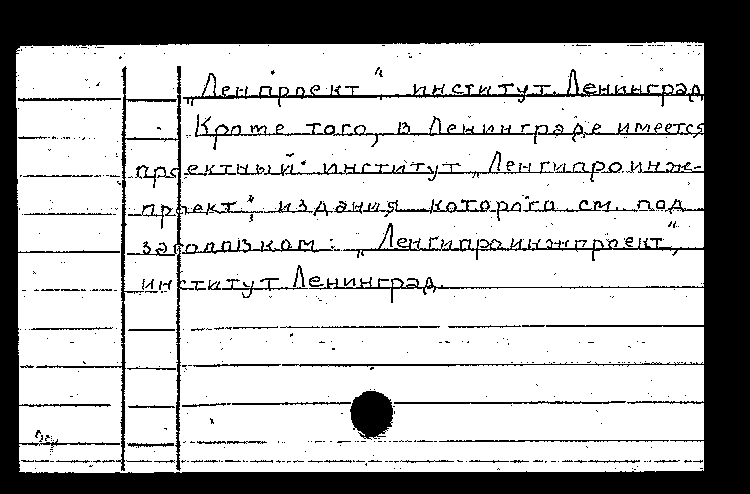 „Ленпроект“ институт. Ленинград
Кроме того, в Ленинграде имеется
проектный институт „Ленгипроинж-
проект“, издания которого см. под
заголовком: „Ленгипроинжпроект“,
институт Ленинград.